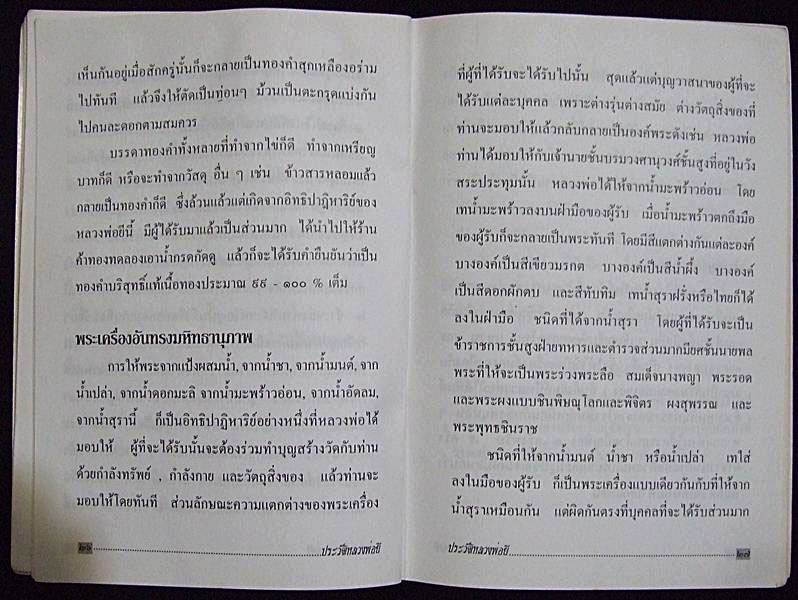 เห็นกันอยู่เมื่อสักครู่นั้นก็จะกลายเป็นทองคำสุกเหลืองอร่าม
ไปทันที แล้วจึงให้ตัดเป็นท่อนๆ ม้วนเป็นตะกรุดแบ่งกัน
ไปคนละดอกตามสมควร
บรรดาทองคำทั้งหลายที่ทำจากไข่ก็ดี ทำจากเหรียญ
บาทก็ดี หรือจะทำจากวัสดุ อื่น ๆ เช่น ข้าวสารหลอมแล้ว
กลายเป็นทองคำก็ดี ซึ่งล้วนแล้วแต่เกิดจากอิทธิปาฏิหาริย์ของ
หลวงพ่อยีนี้ มีผู้ได้รับมาแล้วเป็นส่วนมาก ได้นำไปให้ร้าน
ค้าทองทดลองเอาน้ำกรดกัดดู แล้วก็จะได้รับคำยืนยันว่าเป็น
ทองคำบริสุทธิ์แท้เนื้อทองประมาณ ๙๙ - ๑๐๐ % เต็ม
พระเครื่องอันทรงมหิทธานุภาพ
การให้พระจากแป้งผสมน้ำ, จากน้ำชา, จากน้ำมนต์, จาก
น้ำเปล่า, จากน้ำดอกมะลิ จากน้ำมะพร้าวอ่อน, จากน้ำอัดลม,
จากน้ำสุรานี้ ก็เป็นอิทธิปาฏิหาริย์อย่างหนึ่งที่หลวงพ่อได้
มอบให้ ผู้ที่จะได้รับนั้นจะต้องร่วมทำบุญสร้างวัดกับท่าน
ด้วยกำลังทรัพย์ , กำลังกาย และวัตถุสิ่งของ แล้วท่านจะ
มอบให้โดยทันที ส่วนลักษณะความแตกต่างของพระเครื่อง
๒๖ ประวัติหลวงพ่อยี
ที่ผู้ที่ได้รับจะได้รับไปนั้น สุดแล้วแต่บุญวาสนาของผู้ที่จะ
ได้รับแต่ละบุคคล เพราะต่างรุ่นต่างสมัย ต่างวัตถุสิ่งของที่
ท่านจะมอบให้แล้วกลับกลายเป็นองค์พระดังเช่น หลวงพ่อ
ท่านได้มอบให้กับเจ้านายชั้นบรมวงศานุวงศ์ชั้นสูงที่อยู่ในวัง
สระประทุมนั้น หลวงพ่อได้ให้จากน้ำมะพร้าวอ่อน โดย
เทน้ำมะพร้าวลงบนฝ่ามือของผู้รับ เมื่อน้ำมะพร้าวตกถึงมือ
ของผู้รับก็จะกลายเป็นพระทันที โดยมีสีแตกต่างกันแต่ละองค์
บางองค์เป็นสีเขียวมรกต บางองค์เป็นสีน้ำผึ้ง บางองค์
เป็นสีดอกผักตบ และสีทับทิม เทน้ำสุราฝรั่งหรือไทยก็ได้
ลงในฝ่ามือ ชนิดที่ได้จากน้ำสุรา โดยผู้ที่ได้รับจะเป็น
ข้าราชการชั้นสูงฝ่ายทหารและตำรวจส่วนมากมียศชั้นนายพล
พระที่ให้จะเป็นพระร่วงพระลือ สมเด็จนางพญา พระรอด
และพระผงแบบชินพิษณุโลกและพิจิตร ผงสุพรรณ และ
พระพุทธชินราช
ชนิดที่ให้จากน้ำมนต์ น้ำชา หรือน้ำเปล่า เทใส่
ลงในมือของผู้รับ ก็เป็นพระเครื่องแบบเดียวกันกับที่ให้จาก
น้ำสุราเหมือนกัน แต่ผิดกันตรงที่บุคคลที่จะได้รับส่วนมาก
ประวัติหลวงพ่อยี ๒๗